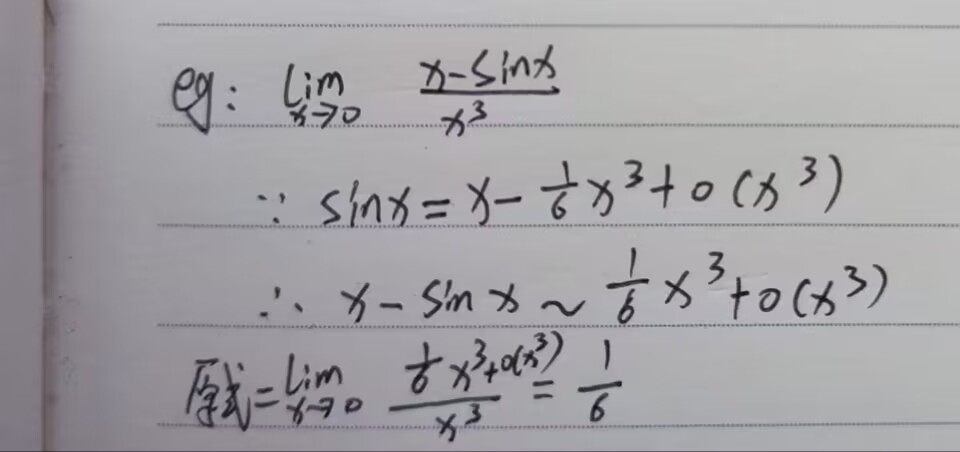 eg: lim x→0 (x-sinx)/x³
∵ sinx = x - 1/6 x³ + o(x³)
∴ x - sin x ~ 1/6 x³ + o(x³)
原式 = lim x→0 (1/6 x³+o(x³))/x³ = 1/6